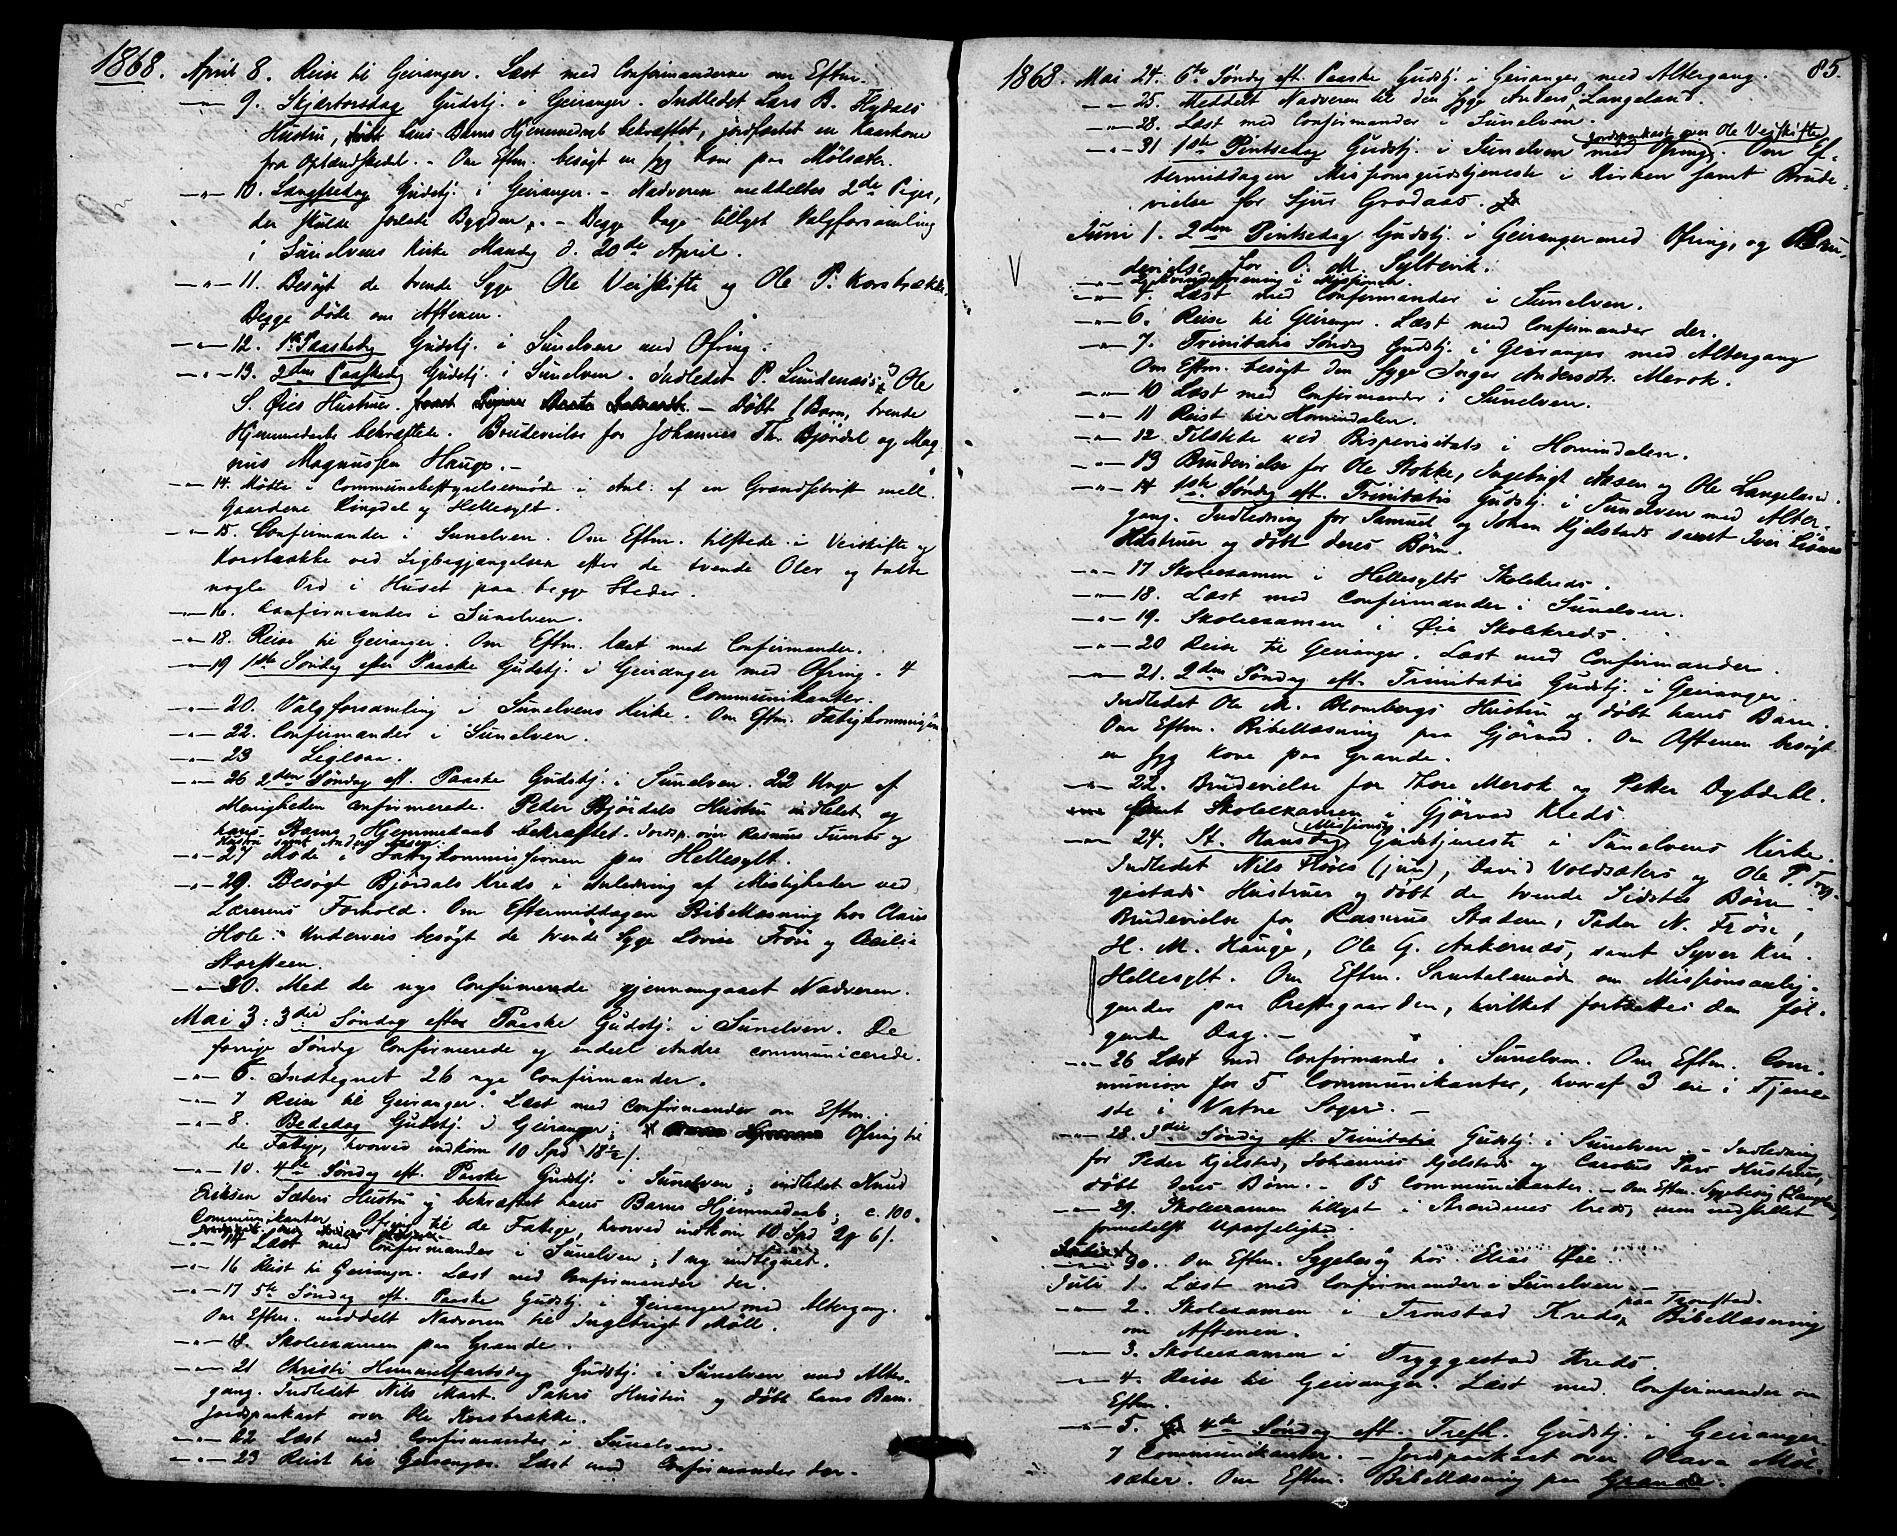 1868. April 8. Reise til Geiranger. Læst med Confirmanderne om Eftm.
—„— 9. Skjærtorsdag Gudstj. i Geiranger. Indledet Lars B. Flydals
Hustru, hans Barns Hjemmedaab bekræftet, jordfæstet en Kaarkone
fra Oplændskedal. - Om Eftm. besøgt en syg Kone paa Mølsæter.
—„— 10. Langfredag Gudstj. i Geiranger. - Nadveren meddeltes 2de Piger,
der skulde forlade Bygden. - Begge Dage tillyst Valgforsamling
i Sunelvens Kirke Mandag d. 20de April.
—„— 11. Besøgt de tvende Syge Ole Veiskifte og Ole P. Korsbrække.
Begge døde om Aftenen.
—„— 12. 1ste Paaskedag Gudstj. i Sunelven med Ofring.
—„— 13. 2den Paaskedag Gudstj. i Sunelven. Indledet P. Lundenæs's og Ole
S. Øies Hustruer. - Døbt 1 Barn, tvende
Hjemmedaab bekræftede. Brudevielse for Johannes Th. Bjørdal og Mag-
nus Magnussen Hauge. -
—„— 14. Mødte i Communebestyrelsesmøde i Anl. af en Grændsetrift mell.
Gaardene Ringdal og Hellesylt.
—„— 15. Confirmander i Sunelven. Om Eftm. tilstede i Veiskifte og
Korsbrække ved Ligbegjængelsen efter de tvende Oler og talte
nogle Ord i Huset paa begge Steder.
—„— 16. Confirmander i Sunelven.
—„— 18. Reise til Geiranger. Om Eftm. læst med Confirmander.
—„— 19 1ste Søndag efter Paaske Gudstj. i Geiranger med Ofring. 4
Communikanter.
—„— 20. Valgforsamling i Sunelvens Kirke. Om Eftm. Fatigkommission
—„— 22. Confirmander i Sunelven.
—„— 23
—„— 26 2den Søndag eft. Paaske Gudstj. i Sunelven. 22 Unge af
Menigheden confirmerede. Peder Bjørdals Hustru indledet og
hans Barns Hjemmedaab bekræftet. Jordsp. over Rasmus Tumbs og
Hustru samt Anders Aasen.
—„— 27 Møde i Fatigkommissionen paa Hellesylt.
—„— 29. Besøgt Bjørdals Kreds i Anledning af Mistigheder ved
Lærerens Forhold. Om Eftermiddagen Bibellæsning hos Claus
Hole. Underveis besøgt de tvende Syge Lovise Frøie og Cecilie
Storsteen.
—„— 30. Med de nys Confirmerede gjennomgaaet Nadveren.
Mai 3: 3die Søndag efter Paaske Gudstj. i Sunelven. De
forrige Søndag Confirmerede og endeel Andre communicerede.
—„— 6. Indtegnet 26 nye Confirmander.
—„— 7 Reise til Geiranger. Læst med Confirmander om Eftm.
—„— 8. Bededag Gudstj. i Geiranger; Ofring til
de Fatige, hvorved indkom 10 Spd 18½ /.
—„— 10. 4de Søndag eft. Paaske Gudstj. i Sunelven; indledet Knud
Eriksen Sæters Hustru og bekræftet hans Barns Hjemmedaab; c. 100.
Communikanter. Ofring til de Fatige, hvorved indkom 10 Spd 2¤ 6/.
—„— 14 Læst med Confirmander i Sunelven; 1 ny indtegnet.
—„— 16 Reist til Geiranger. Læst med Confirmander der.
—„— 17 5te Søndag eft. Paaske Gudstj. i Geiranger med Altergang.
Om Eftm. meddelt Nadveren til Ingebrigt Møll.
—„— 18. Skoleexamen paa Grande.
—„— 21 Christi Himmelfartsdag Gudstj. i Sunelven med Alter-
gang. Indledet Nils Mart. Hustru og døbt hans Barn.
Jordspaakast over Ole Korsbrække.
—„— 22 Læst med Confirmander i Sunelven.
—„— 23 Reist til Geiranger. Læst med Confirmander der.
85.
1868 Mai 24. 6te Søndag eft. Paaske Gudstj. i Geiranger med Altergang.
—„— 25. Meddelt Nadveren til den syge Anders Langeland.
—„— 28. Læst med Confirmander i Sunelven.
Jordspaakast over Ole Veiskifte
—„— 31 1ste Pintsedag Gudstj. i Sunelven med Ofring. Om Ef-
termiddagen Missionsgudstjeneste i Kirken samt Brude-
vielse for Sjur Grodaas.
Juni 1. 2den Pintsedag Gudstj. i Geiranger med Ofring, og Bru-
devielse for O. M. Syltevik.
Kvindeforening i Missionen
—„— 4. Læst med Confirmander i Sunelven.
—„— 6. Reise til Geiranger. Læst med Confirmander der.
—„— 7. Trinitatis Søndag Gudstj. i Geiranger med Altergang
Om Eftm. besøgt den syge Inger Andersdtr. Merok.
—„— 10 Læst med Confirmander i Sunelven.
—„— 11 Reist til Hornindalen.
—„— 12. Tilstede ved Bispevisitats i Hornindalen.
—„— 13 Brudevielse for Ole Stokke, Ingebrigt Aksen og Ole Langeland.
—„— 14 1ste Søndag eft. Trinitatis Gudstj. i Sunelven med Alter-
gang. Indledning for Samuel og Johan Kjelstads samt Iver Lianes
Hustruer og døbt deres Børn.
—„— 17 Skoleexamen i Hellesylts Skolekreds.
—„— 18. Læst med Confirmander i Sunelven.
—„— 19. Skoleexamen i Øie Skolekreds.
—„— 20 Reise til Geiranger. Læst med Confirmander.
—„— 21. 2den Søndag eft. Trinitatis Gudstj. i Geiranger.
Indledet Ole M. Blombergs Hustru og døbt hans Barn.
Om Eftm. Bibellæsning paa Gjørvad. Om Aftenen besøgt
en syg Kone paa Grande.
—„— 22. Brudevielse for Thore Merok og Petter Dybdahl.
samt Skoleexamen i Gjørvad Kreds.
—„— 24. St. Hansdag Missions Gudstjeneste i Sunelvens Kirke.
Indledet Nils Fløes (jun), David Voldsæters og Ole P. Tryg-
gestads Hustruer og døbt de tvende Sidstes Børn.
Brudevielse for Rasmus Stadem, Peder N. Frøie,
H. M. Hauge, Ole G. Aakernæs, samt Syver Kn.
Hellesylt. Om Eftm. Samtalemøde om Missionsanlig-
gender paa Prestegaarden, hvilket fortsattes den føl-
gende Dag. -
—„— 26 Læst med Confirmander i Sunelven. Om Eftm. Com-
munion for 5 Communikanter, hvoraf 3 ere i Tjene-
ste i Vatne Sogn. -
—„— 28. 3die Søndag eft. Trinitatis Gudstj. i Sunelven - Indledning
for Peder Kjelstad, Johannes Kjelstads og Carolus Pers Hustruer,
døbt deres Børn. - 85 Communikanter. - Om Eftm. Sygebesøg i Langeland
—„— 29. Skoleexamen tillyst i Strandenes Kreds, men indstillet
formedelst Upasselighed.
—„— 30. Om Eftm. Sygebesøg hos Elias Øie.
Juli 1. Læst med Confirmander i Sunelven -
—„— 2. Skoleexamen i Tronstad Kreds. Bibellæsning paa Tronstad.
om Aftenen.
—„— 3. Skoleexamen i Tryggestad Kreds.
—„— 4. Reise til Geiranger. Læst med Confirmander om
Eftm.
—„— 5. 4de Søndag eft. Trefh. Gudstj. i Geiranger
7 Communikanter. - Jordspaakast over Olava Møl-
sæter. Om Eftm. Bibellæsning paa Grande.